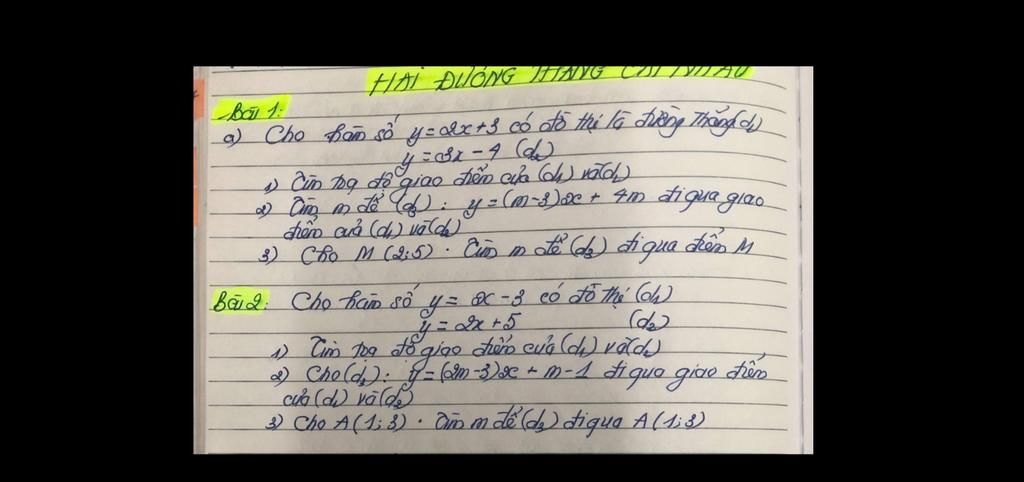 HAI ĐƯỜNG THẲNG CẮT NHAU
Bài 1:
a) Cho hàm số y = 2x + 3 có đồ thị là đường thẳng (d₁)
y = 3x - 4 (d₂)
1) Tìm tọa độ giao điểm của (d₁) và (d₂)
2) Tìm m để (d₃) : y = (m-3)x + 4m đi qua giao
điểm của (d₁) và (d₂)
3) Cho M (2;5) . Tìm m để (d₃) đi qua điểm M
Bài 2: Cho hàm số y = x - 3 có đồ thị (d₁)
y = 2x + 5 (d₂)
1) Tìm tọa độ giao điểm của (d₁) và (d₂)
2) Cho (d₃) : y = (2m-3)x + m - 1 đi qua giao điểm
của (d₁) và (d₂)
3) Cho A (1;3) . Tìm m để (d₃) đi qua A (1;3)